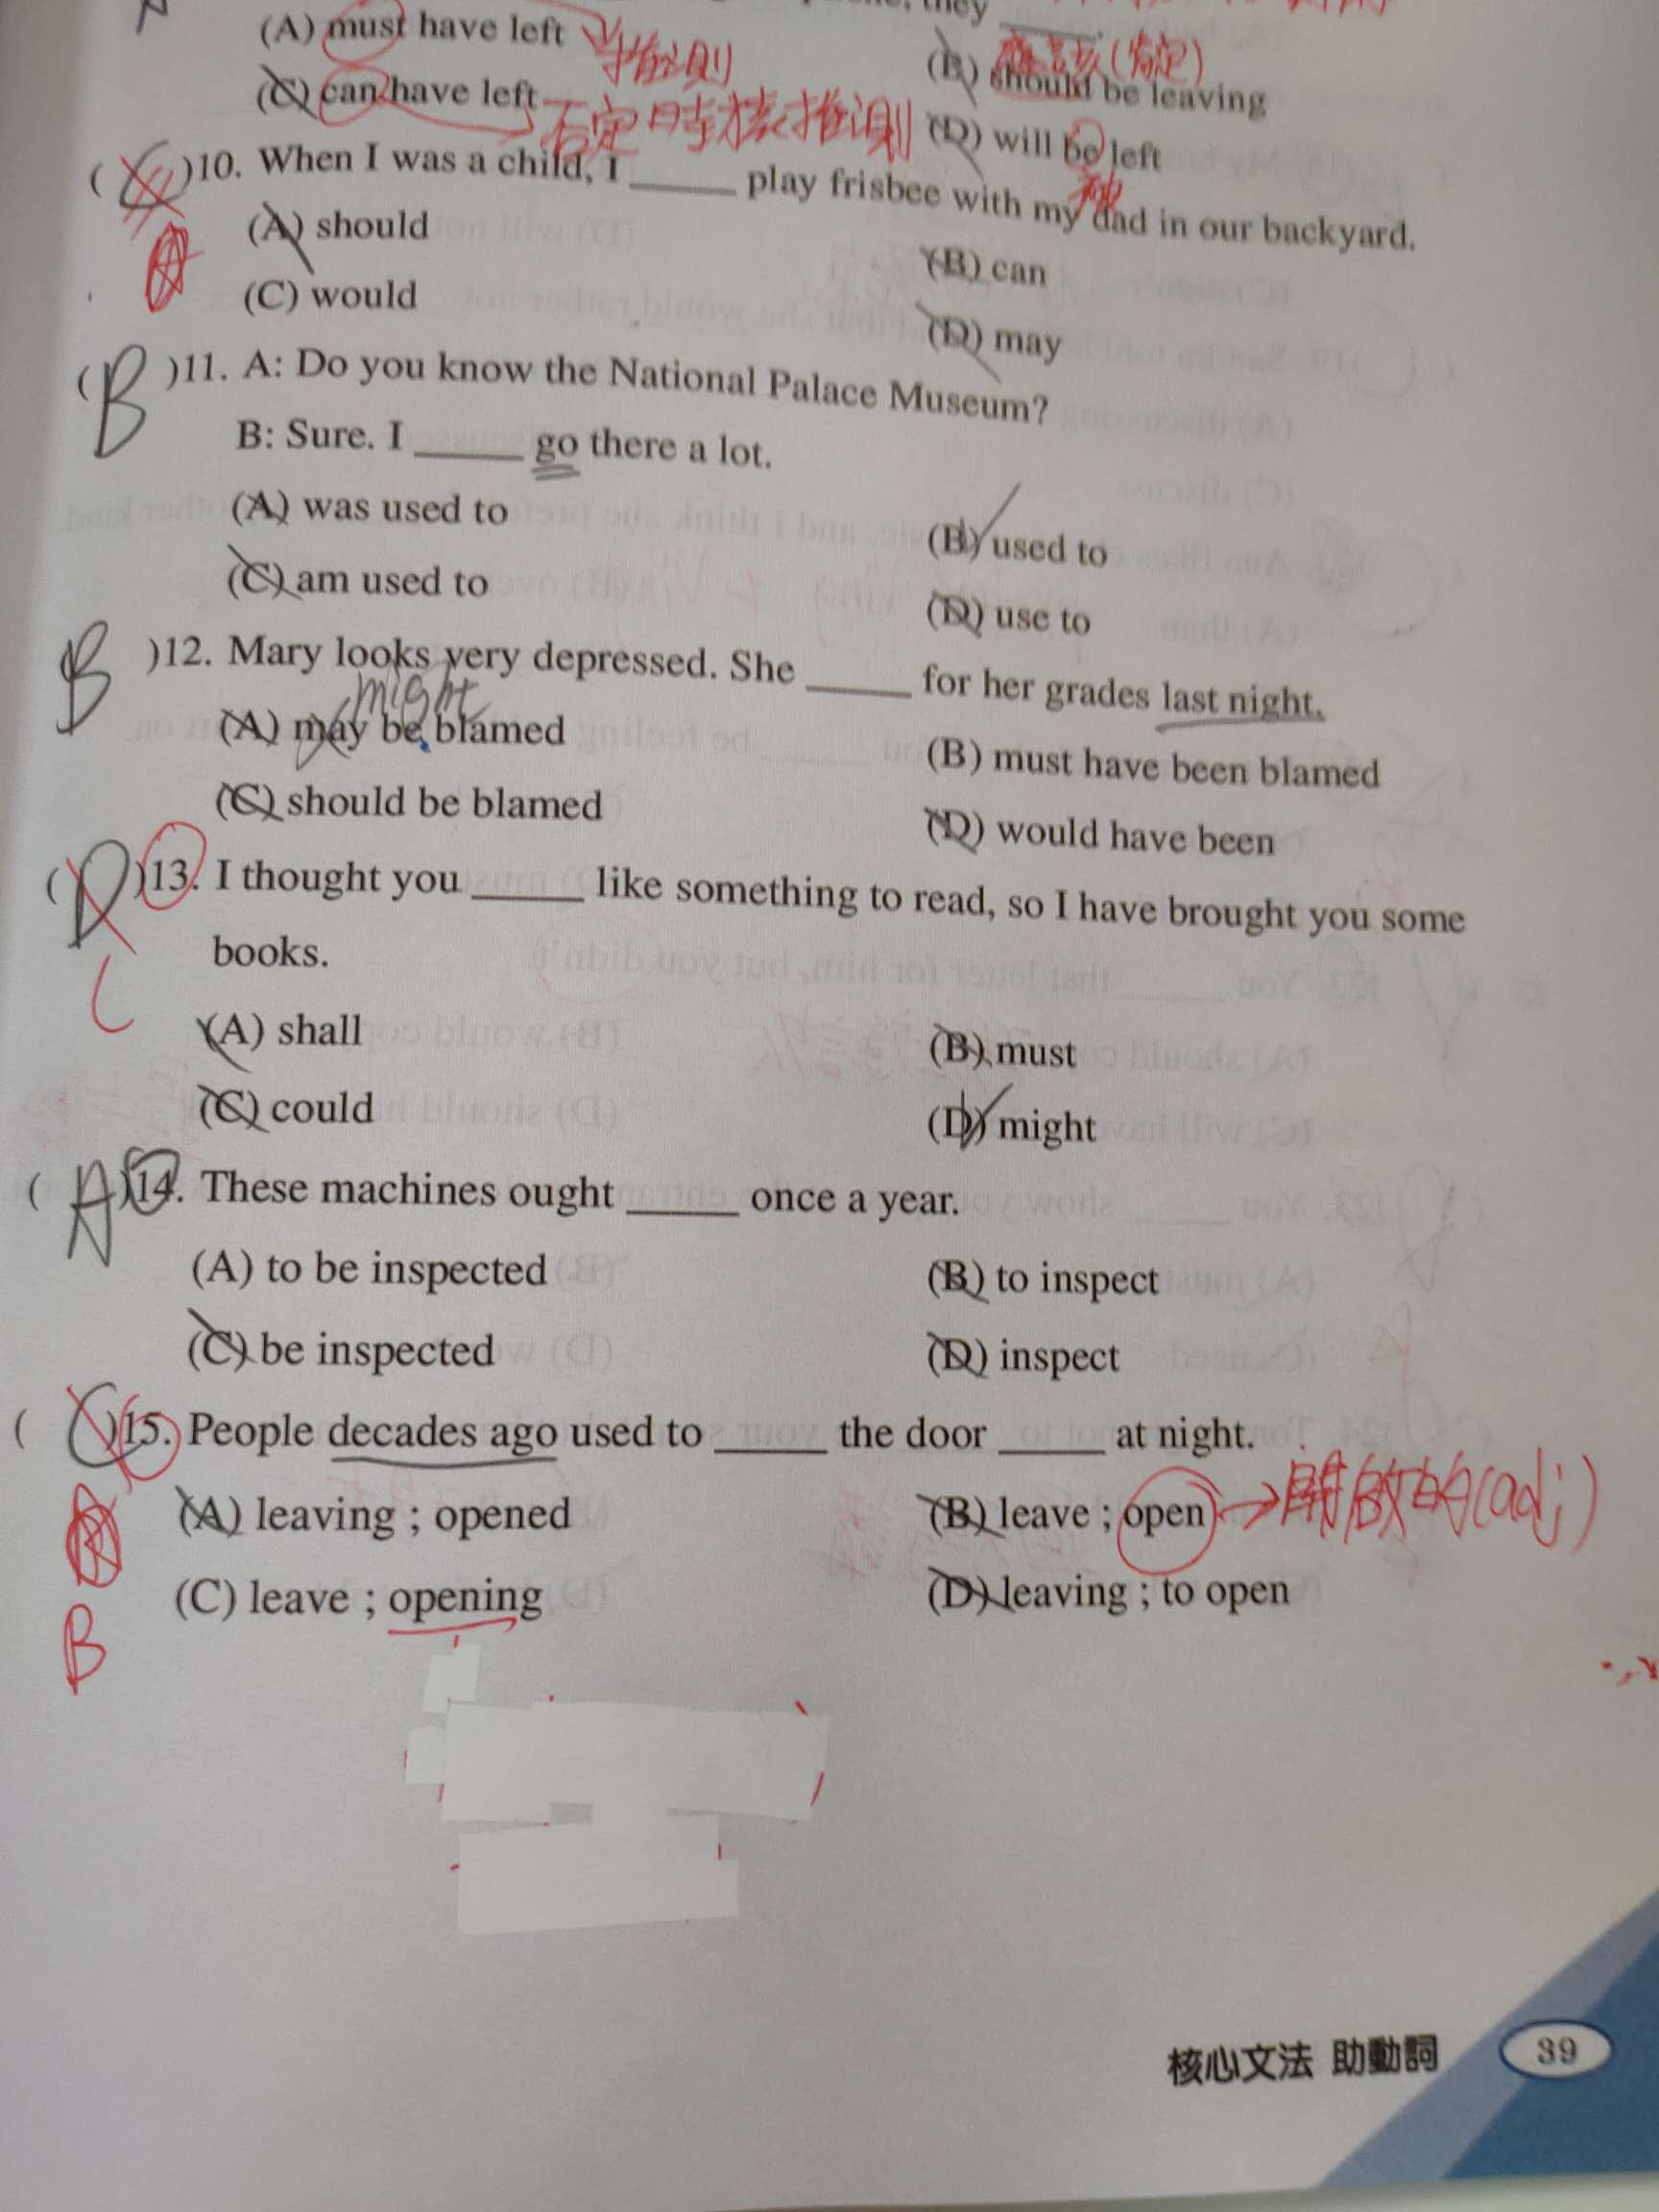 they
(A) must have left 推測
(B) should be leaving 應該(肯定)
(C) can have left 否定時才表推測
(D) will be left 被
( C )10. When I was a child, I _____ play frisbee with my dad in our backyard.
(A) should
(B) can
(C) would
(D) may
( B )11. A: Do you know the National Palace Museum?
B: Sure. I _____ go there a lot.
(A) was used to
(B) used to
(C) am used to
(D) use to
( B )12. Mary looks very depressed. She _____ for her grades last night.
might
(A) may be blamed
(B) must have been blamed
(C) should be blamed
(D) would have been
( D )13. I thought you _____ like something to read, so I have brought you some
books.
C
(A) shall
(B) must
(C) could
(D) might
( A )14. These machines ought _____ once a year.
(A) to be inspected
(B) to inspect
(C) be inspected
(D) inspect
( C )15. People decades ago used to _____ the door _____ at night.
(A) leaving ; opened
(B) leave ; open → 開放的(adj)
(C) leave ; opening
(D) leaving ; to open
B
核心文法 助動詞 39